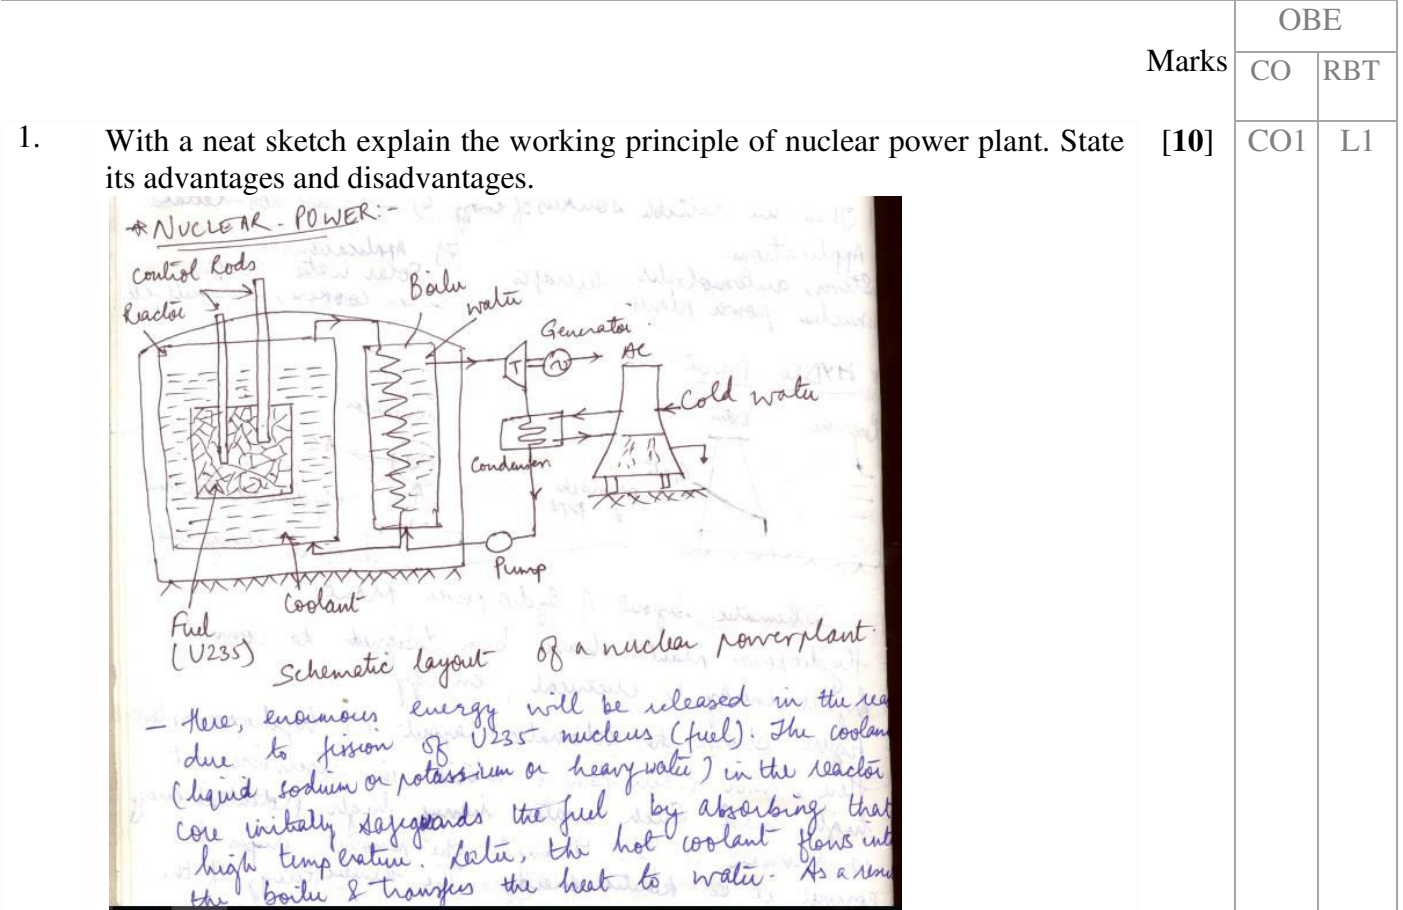 OBE
Marks
CO
RBT
1.
With a neat sketch explain the working principle of nuclear power plant. State
its advantages and disadvantages.
[10]
CO1
L1
* NUCLEAR - POWER:-
Control Rods
Reactor
Boiler
water
Generator
AC
T
Cold water
Condenser
Pump
Coolant
Fuel
(U235)
Schematic layout of a nuclear powerplant.
- Here, enormous energy will be released in the rea
due to fission of U235 nucleus (fuel). The coolan
(liquid sodium or potassium or heavy water) in the reactor
core initially safeguards the fuel by absorbing that
high temperature. Later, the hot coolant flows int
the boiler & transfers the heat to water. As a resu